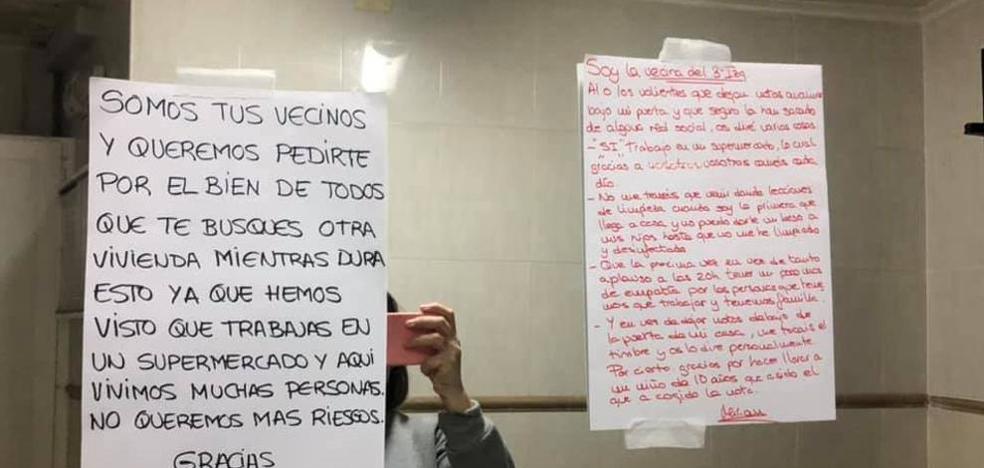 SOMOS TUS VECINOS
Y QUEREMOS PEDIRTE
POR EL BIEN DE TODOS
QUE TE BUSQUES OTRA
VIVIENDA MIENTRAS DURA
ESTO YA QUE HEMOS
VISTO QUE TRABAJAS EN
UN SUPERMERCADO Y AQUI
VIVIMOS MUCHAS PERSONAS.
NO QUEREMOS MAS RIESGOS.
GRACIAS
Soy la vecina del 3º Izq
Al o los valientes que dejan notas
bajo mi puerta y que seguro la han sacado
de alguna red social, os diré varias cosas.
- "SI" Trabajo en un supermercado, lo cual
gracias a vosotros coméis cada
día.
- No me tenéis que venir dando lecciones
de limpieza cuando soy la primera que
llega a casa y no puedo darle un beso a
mis hijos hasta que no me he limpiado
y desinfectado
- Que la próxima vez en vez de tanto
aplauso a las 20h tener un poco mas
de empatía por las personas que tene
mos que trabajar y tenemos familia.
- Y en vez de dejar notas debajo de
la puerta de mi casa, me tocais el
timbre y os lo dire personalmente
Por cierto, gracias por hacer llorar a
un niño de 10 años que a sido el
que a cogido la nota.